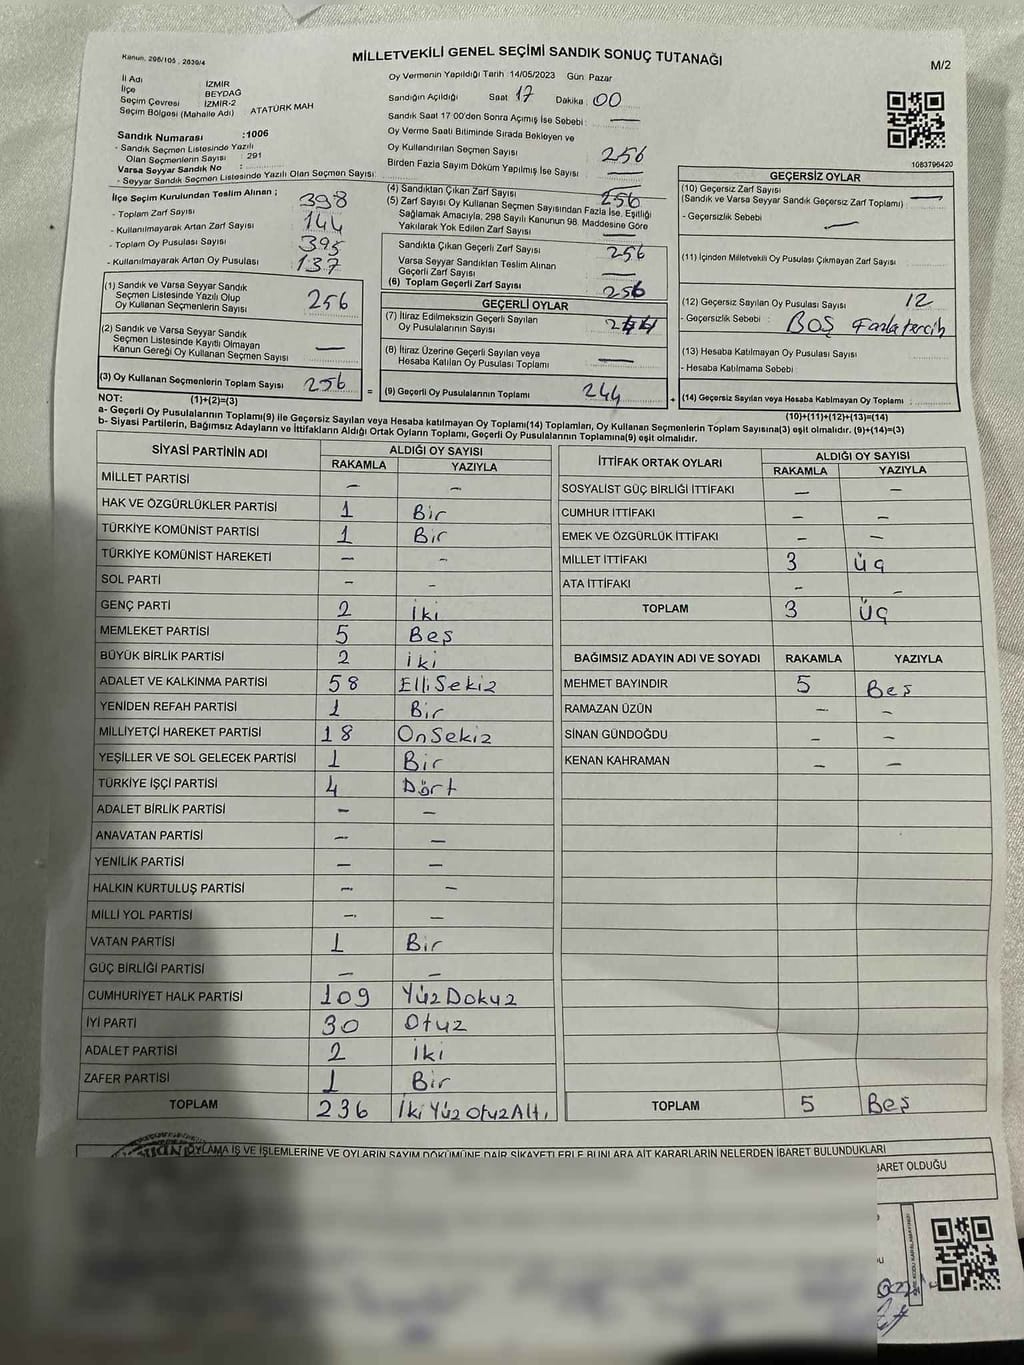 Kanun, 298/105, 2839/4
MİLLETVEKİLİ GENEL SEÇİMİ SANDIK SONUÇ TUTANAĞI
M/2
İl Adı İZMİR
İlçe BEYDAĞ
Seçim Çevresi İZMİR-2
Seçim Bölgesi (Mahalle Adı) ATATÜRK MAH
Sandık Numarası :1006
- Sandık Seçmen Listesinde Yazılı
Olan Seçmenlerin Sayısı : 291
Varsa Seyyar Sandık No :
- Seyyar Sandık Seçmen Listesinde Yazılı Olan Seçmen Sayısı:
İlçe Seçim Kurulundan Teslim Alınan ;
- Toplam Zarf Sayısı 398
- Kullanılmayarak Artan Zarf Sayısı 144
- Toplam Oy Pusulası Sayısı 395
- Kullanılmayarak Artan Oy Pusulası 137
(1) Sandık ve Varsa Seyyar Sandık
Seçmen Listesinde Yazılı Olup
Oy Kullanan Seçmenlerin Sayısı 256
(2) Sandık ve Varsa Seyyar Sandık
Seçmen Listesinde Kayıtlı Olmayan
Kanun Gereği Oy Kullanan Seçmen Sayısı —
(3) Oy Kullanan Seçmenlerin Toplam Sayısı 256 =
Oy Vermenin Yapıldığı Tarih :14/05/2023 Gün: Pazar
Sandığın Açıldığı Saat 17 Dakika : 00
Sandık Saat 17 00'den Sonra Açımış İse Sebebi : —
Oy Verme Saati Bitiminde Sırada Bekleyen ve
Oy Kullandırılan Seçmen Sayısı 256
Birden Fazla Sayım Döküm Yapılmış İse Sayısı —
(4) Sandıktan Çıkan Zarf Sayısı 256
(5) Zarf Sayısı Oy Kullanan Seçmen Sayısından Fazla İse, Eşitliği
Sağlamak Amacıyla, 298 Sayılı Kanunun 98. Maddesine Göre
Yakılarak Yok Edilen Zarf Sayısı —
Sandıkta Çıkan Geçerli Zarf Sayısı 256
Varsa Seyyar Sandıktan Teslim Alınan
Geçerli Zarf Sayısı —
(6) Toplam Geçerli Zarf Sayısı 256
GEÇERLİ OYLAR
(7) İtiraz Edilmeksizin Geçerli Sayılan
Oy Pusulalarının Sayısı 244
(8) İtiraz Üzerine Geçerli Sayılan veya
Hesaba Katılan Oy Pusulası Toplamı —
(9) Geçerli Oy Pusulalarının Toplamı 244 +
1083796420
GEÇERSİZ OYLAR
(10) Geçersiz Zarf Sayısı
(Sandık ve Varsa Seyyar Sandık Geçersiz Zarf Toplamı) : —
- Geçersizlik Sebebi —
(11) İçinden Milletvekili Oy Pusulası Çıkmayan Zarf Sayısı
(12) Geçersiz Sayılan Oy Pusulası Sayısı 12
- Geçersizlik Sebebi : BOŞ Fazla tercih
(13) Hesaba Katılmayan Oy Pusulası Sayısı
- Hesaba Katılmama Sebebi
(14) Geçersiz Sayılan veya Hesaba Katılmayan Oy Pusulası Toplamı :
NOT: (1)+(2)=(3) (10)+(11)+(12)+(13)=(14)
a- Geçerli Oy Pusulalarının Toplamı(9) ile Geçersiz Sayılan veya Hesaba katılmayan Oy Pusulası Toplamı(14) Toplamları, Oy Kullanan Seçmenlerin Toplam Sayısına(3) eşit olmalıdır. (9)+(14)=(3)
b- Siyasi Partilerin, Bağımsız Adayların ve İttifakların Aldığı Ortak Oyların Toplamı, Geçerli Oy Pusulalarının Toplamına(9) eşit olmalıdır.
SİYASİ PARTİNİN ADI ALDIĞI OY SAYISI
RAKAMLA YAZIYLA
MİLLET PARTİSİ — —
HAK VE ÖZGÜRLÜKLER PARTİSİ 1 Bir
TÜRKİYE KOMÜNİST PARTİSİ 1 Bir
TÜRKİYE KOMÜNİST HAREKETİ — —
SOL PARTİ — —
GENÇ PARTİ 2 İki
MEMLEKET PARTİSİ 5 Beş
BÜYÜK BİRLİK PARTİSİ 2 İki
ADALET VE KALKINMA PARTİSİ 58 Elli Sekiz
YENİDEN REFAH PARTİSİ 1 Bir
MİLLİYETÇİ HAREKET PARTİSİ 18 On Sekiz
YEŞİLLER VE SOL GELECEK PARTİSİ 1 Bir
TÜRKİYE İŞÇİ PARTİSİ 4 Dört
ADALET BİRLİK PARTİSİ — —
ANAVATAN PARTİSİ — —
YENİLİK PARTİSİ — —
HALKIN KURTULUŞ PARTİSİ — —
MİLLİ YOL PARTİSİ — —
VATAN PARTİSİ 1 Bir
GÜÇ BİRLİĞİ PARTİSİ — —
CUMHURİYET HALK PARTİSİ 109 Yüz Dokuz
İYİ PARTİ 30 Otuz
ADALET PARTİSİ 2 İki
ZAFER PARTİSİ 1 Bir
TOPLAM 236 İki Yüz Otuz Altı
İTTİFAK ORTAK OYLARI ALDIĞI OY SAYISI
RAKAMLA YAZIYLA
SOSYALİST GÜÇ BİRLİĞİ İTTİFAKI — —
CUMHUR İTTİFAKI — —
EMEK VE ÖZGÜRLÜK İTTİFAKI — —
MİLLET İTTİFAKI 3 Üç
ATA İTTİFAKI — —
TOPLAM 3 Üç
BAĞIMSIZ ADAYIN ADI VE SOYADI RAKAMLA YAZIYLA
MEHMET BAYINDIR 5 Beş
RAMAZAN ÜZÜN — —
SİNAN GÜNDOĞDU — —
KENAN KAHRAMAN — —
TOPLAM 5 Beş
OYLAMA İŞ VE İŞLEMLERİNE VE OYLARIN SAYIM DÖKÜMÜNE DAİR ŞİKAYETLERLE BUNLARA AİT KARARLARIN NELERDEN İBARET BULUNDUKLARI
BARET OLDUĞU